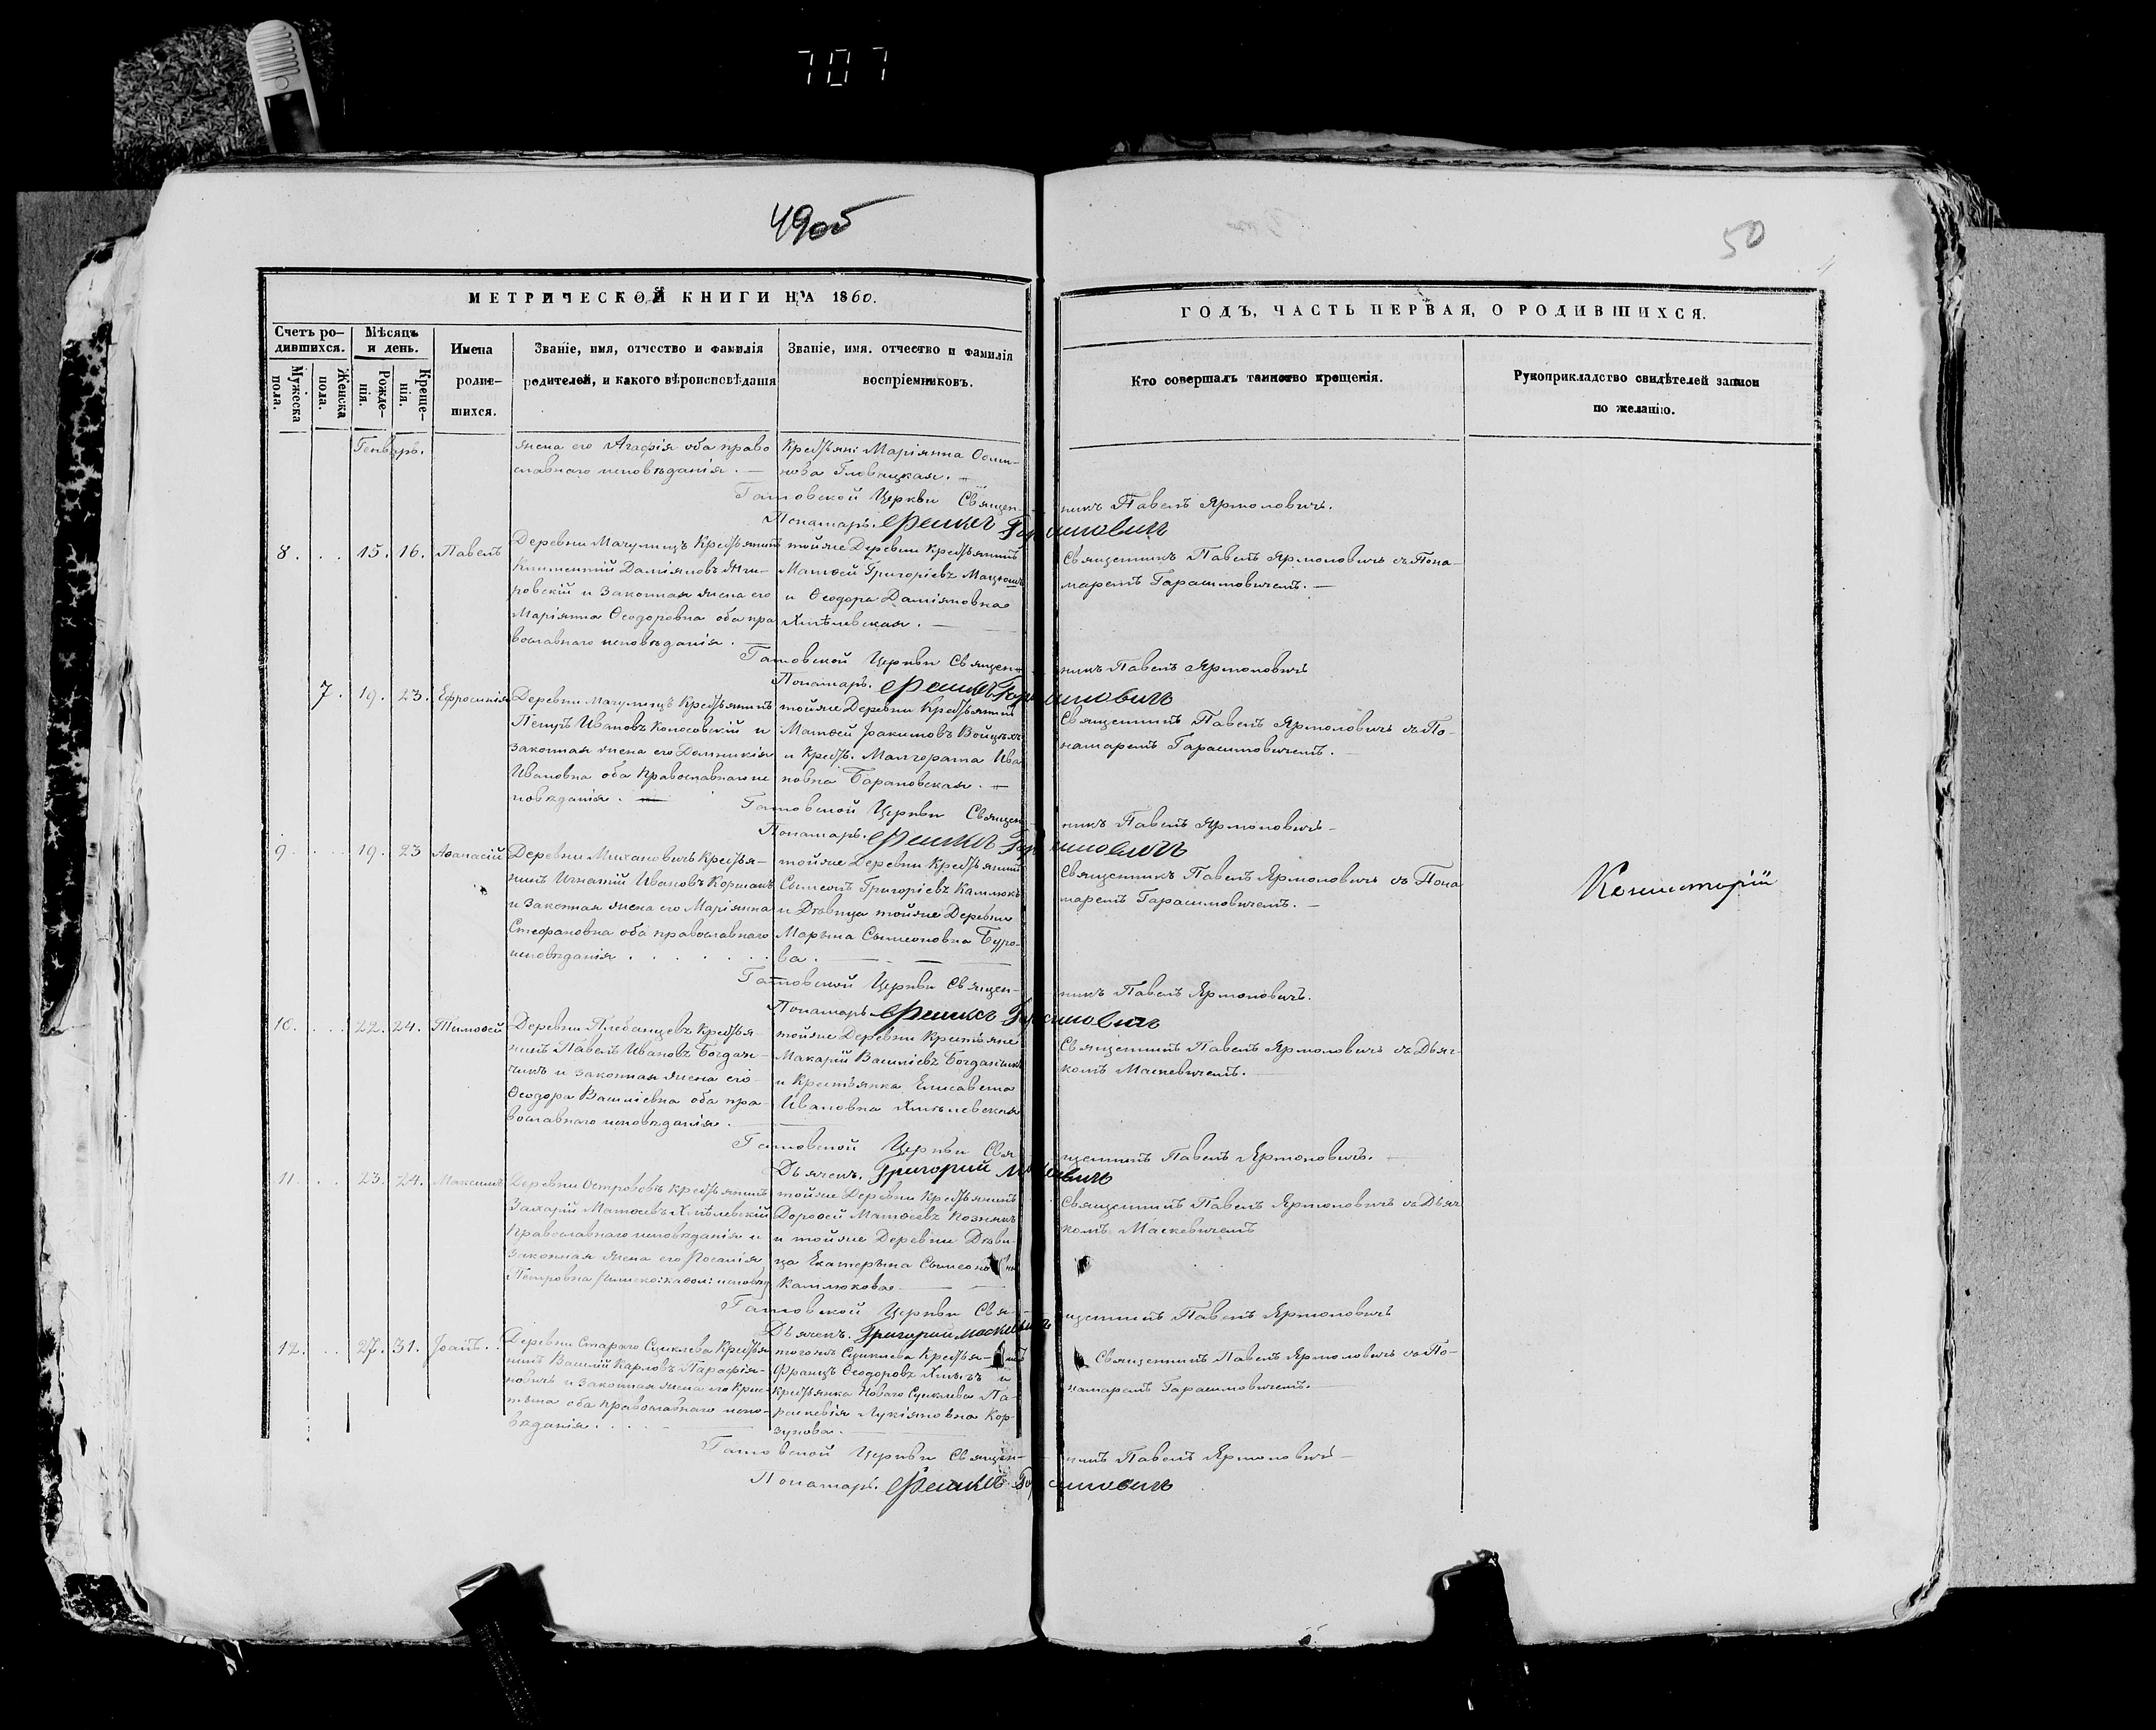 707
49об
50
МЕТРИЧЕСКОЙ КНИГИ НА 1860.
Счетъ ро-
дившихся.
Мѣсяцъ
и день.
Мужеска
пола.
Женска
пола.
Рожде-
нія.
Креще-
нія.
Имена
родив-
шихся.
Званіе, имя, отчество и фамилія
родителей, и какого вѣроисповѣданія
Званіе, имя, отчество и фамилія
воспріемниковъ.
ГОДЪ, ЧАСТЬ ПЕРВАЯ, О РОДИВШИХСЯ.
Кто совершалъ таинство крещенія.
Рукоприкладство свидѣтелей записи
по желанію.
Генварь.
жена его Агафія оба право
славнаго исповѣданія. —
Крестьян: Маріянна Осли-
нова Гловацкая.
Гатовской Церкви Священ-
никъ Павелъ Ярмоловичь.
Понамарь Феликсъ Гарашмовичъ
8. 15. 16. Павелъ
Деревни Мачулищъ Крестьянинъ
Климентій Даміяновъ
ровскій и Законная жена его
Маріянна Ѳеодоровна оба пра
вославнаго исповѣданія.
тойже Деревни Крестьянинъ
Матѳей Григоріевъ
и Ѳеодора Даміяновна
Хмѣлевская.
Священникъ Павелъ Ярмоловичь съ Пона-
маремъ Гарашмовичемъ. —
Гатовской Церкви Священ-
никъ Павелъ Ярмоловичь
Понамарь. Феликсъ Гарашмовичъ
7. 19. 23. Ефросинія
Деревни Мачулищъ Крестьянинъ
Петръ Ивановъ Колосовскій и
законная жена его Домникія
Ивановна оба Православнаго ис
повѣданія.
тойже Деревни Крестьянинъ
Матѳей Іоакимовъ Войцѣх
и Крестьян. Малгората Ива
новна Барановская.
Священникъ Павелъ Ярмоловичь съ По-
намаремъ Гарашмовичемъ.
Гатовской Церкви Священ
никъ Павелъ Ярмоловичь
Понамарь. Феликсъ Гарашмовичъ
9. 19. 23 Аѳанасій
Деревни Михановичъ Крестья-
нинъ Игнатій Ивановъ Коршакъ
и Законная жена его Маріянна
Стефановна оба православнаго
исповѣданія
тойже Деревни Крестьянинъ
Сымеонъ Григоріевъ Камлюкъ
и Дѣвица тойже Деревни
Марьяна Сымеоновна Буро-
ва.
Священникъ Павелъ Ярмоловичь съ Пона
маремъ Гарашмовичемъ. —
Консисторіи
Гатовской Церкви Священ-
никъ Павелъ Ярмоловичь.
Понамарь Феликсъ Гарашмовичъ
10. 22. 24. Тимоѳей
Деревни Плебанцевъ Крестья-
нинъ Павелъ Ивановъ Богдан-
чикъ и законная жена его
Ѳеодора Василіевна оба пра-
вославнаго исповѣданія.
тойже Деревни Крестьяне
Макарій Василіевъ Богданчикъ
и Крестьянка Елисавета
Ивановна Хмѣлевская
Священникъ Павелъ Ярмоловичь съ Дьяч-
комъ Маскевичемъ.
Гатовской Церкви Свя
щенникъ Павелъ Ярмоловичь.
Дьячекъ. Григорій Маскевичъ
11. 23. 24. Максимъ
Деревни Острововъ Крестьянинъ
Захарій Матѳеевъ Хмѣлевскій
Православнаго исповѣданія и
Законная жена его Розалія
Петровна Римско: кафол: исповѣд
тойже Деревни Крестьянинъ
Дороѳей Матѳеевъ Козлякъ
и тойже Деревни Дѣви-
ца Екатерына Сымеонов
Камлюкова
Священникъ Павелъ Ярмоловичь съ Дьяч
комъ Маскевичемъ
Гатовской Церкви Свя-
щенникъ Павелъ Ярмоловичь
Дьячекъ. Григорій Маскевичъ
12. 27. 31. Іоаннъ.
Деревни Стараго Суцклева Крестья
нинъ Василій Карловъ Парафія-
новичъ и Законная жена его Крис-
тына оба Православнаго испо-
вѣданія.
тогожъ Суцклева Крестья-
Францъ Ѳеодоровъ Хмызъ и
Крестьянка Новаго Суцклева Па-
раскевія Лукіяновна Кор-
зунова.
Священникъ Павелъ Ярмоловичь съ По-
намаремъ Гарашмовичемъ.
Гатовской Церкви Священ-
никъ Павелъ Ярмоловичь
Понамарь. Феликсъ Гарашмовичъ